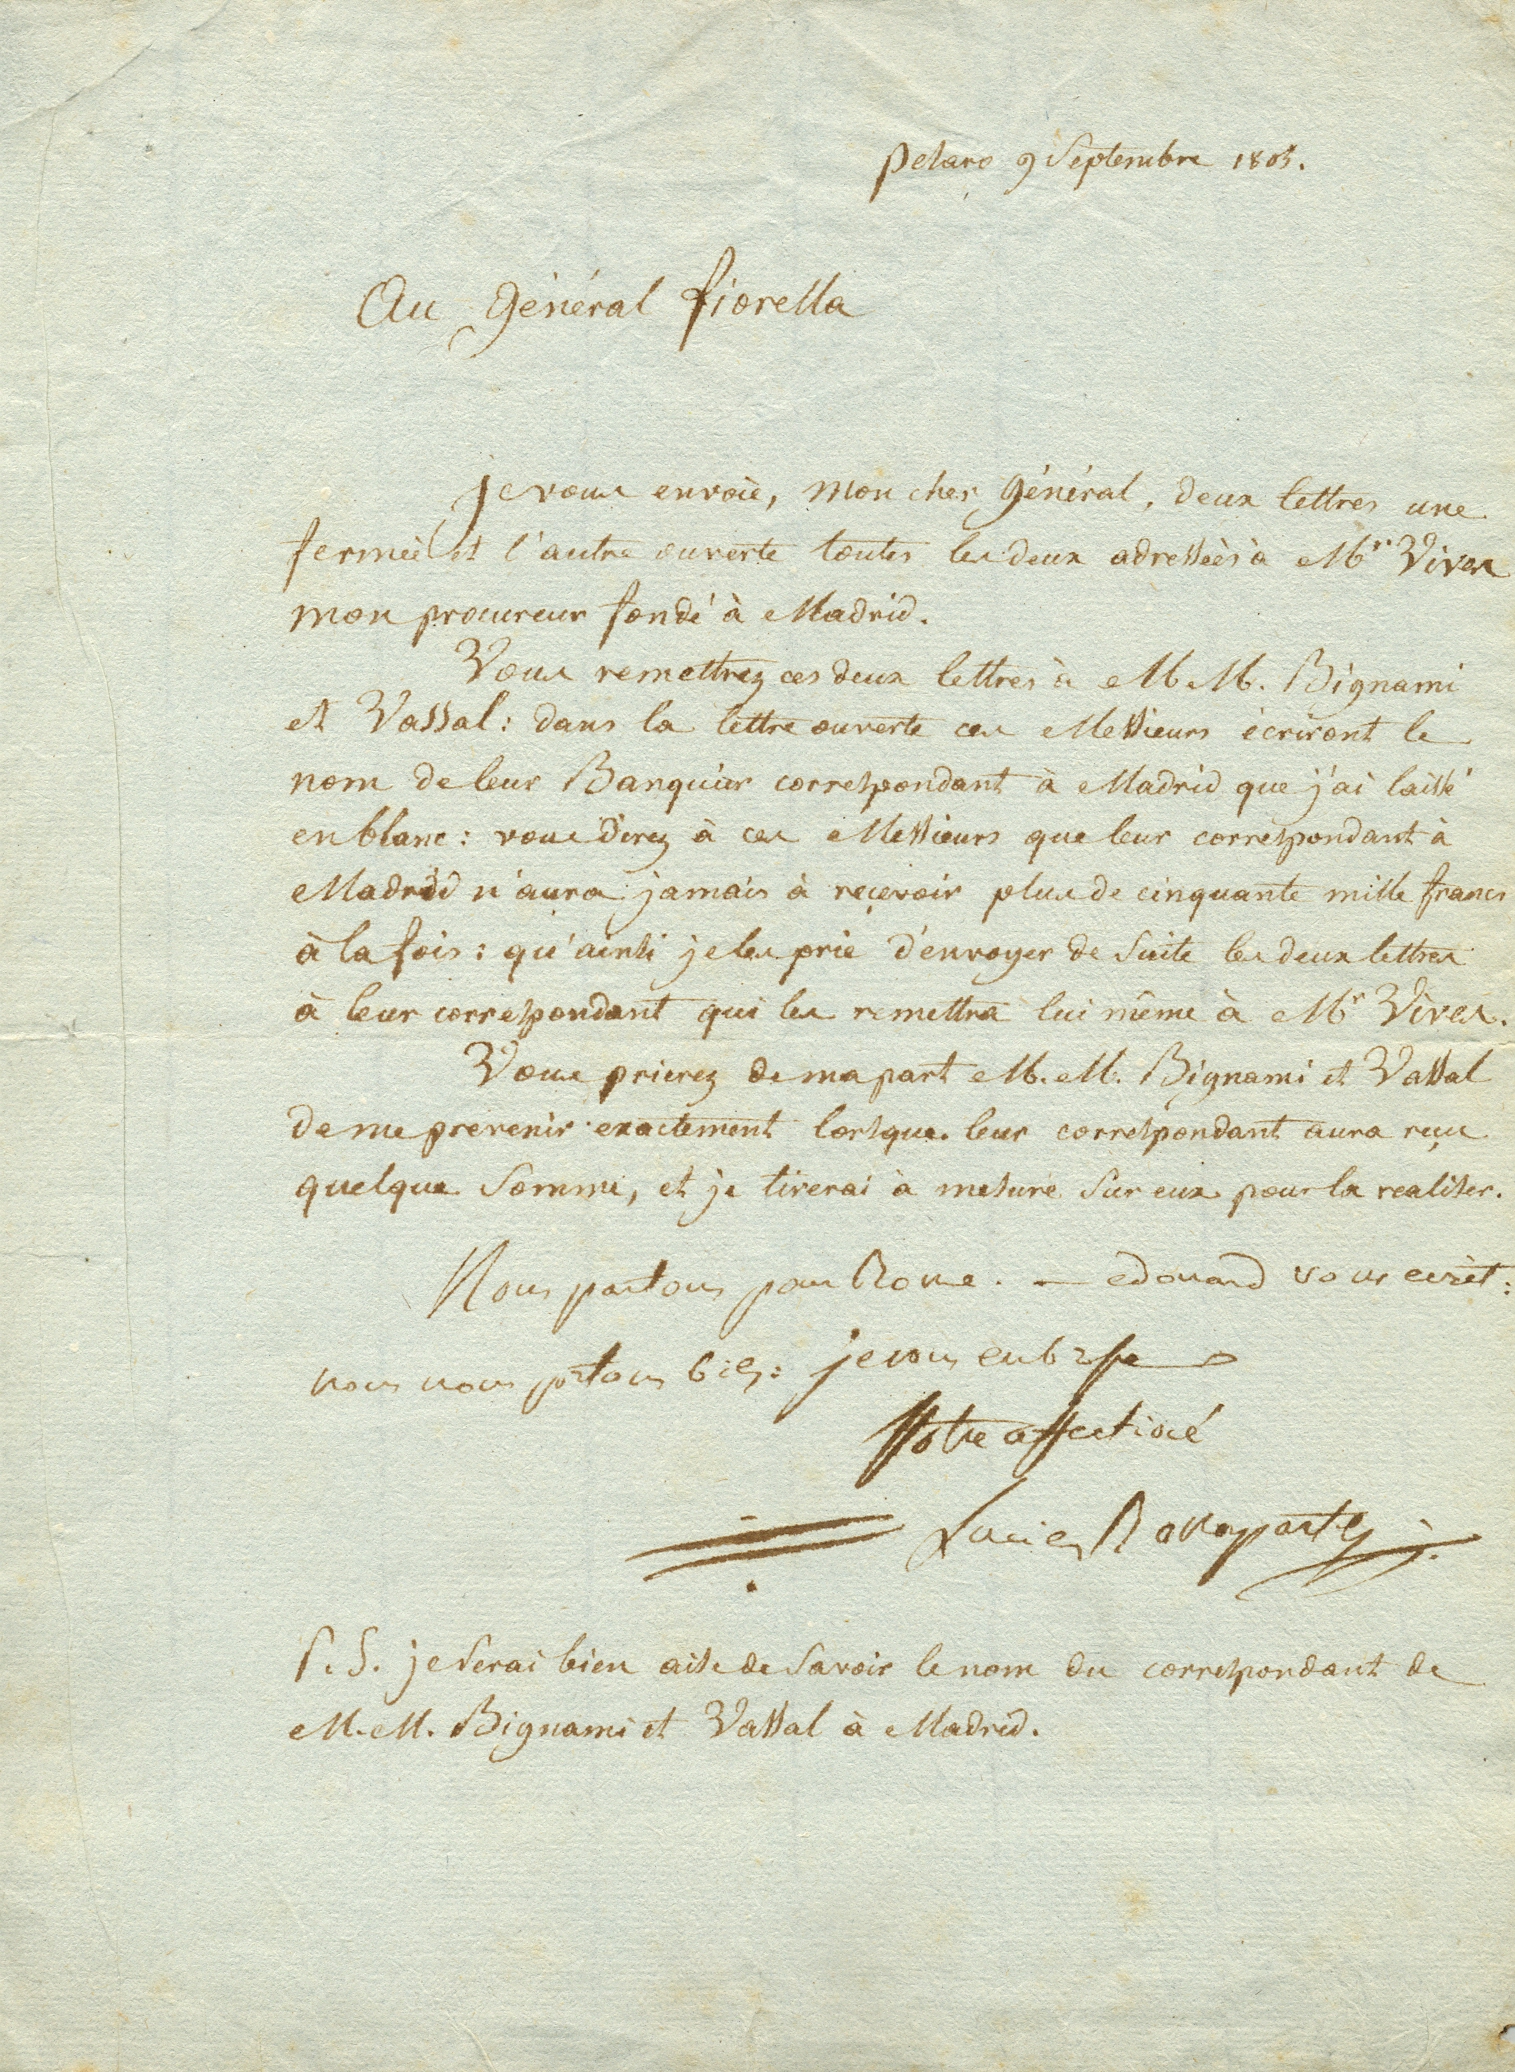 Pesaro 9 Septembre 1805.
Au Général fiorella
je vous envoie, mon cher Général, deux lettres une
fermeé et l'autre ouverte toutes les deux adresseès à Mr. Vives
mon procureur fondé à Madrid.
Vous remettrez ces deux lettres à M.M. Bignami
et Vassal : dans la lettre ouverte ces Messieurs écriront le
nom de leur Banquier correspondant à Madrid que j'ai laissé
en blanc : vous direz à ces Messieurs que leur correspondant à
Madrid n'aura jamais à reçevoir plus de cinquante mille francs
à la fois : qu'ainsi je les prie d'envoyer de suite les deux lettres
à leur correspondant qui les remettra lui même à Mr Vives.
Vous prierez de ma part M.M. Bignami et Vassal
de me prevenir exactement lorsque leur correspondant aura reçu
quelque somme, et je tirerai à mesure sur eux pour la realiser.
Nous partons pour Rome. — edouard vous ecrit :
nous nous portons bien : je vous embrasse
Votre affectioné
Lucien Bonaparte
P.S. je serai bien aise de savoir le nom du correspondant de
M.M. Bignami et Vassal à Madrid.